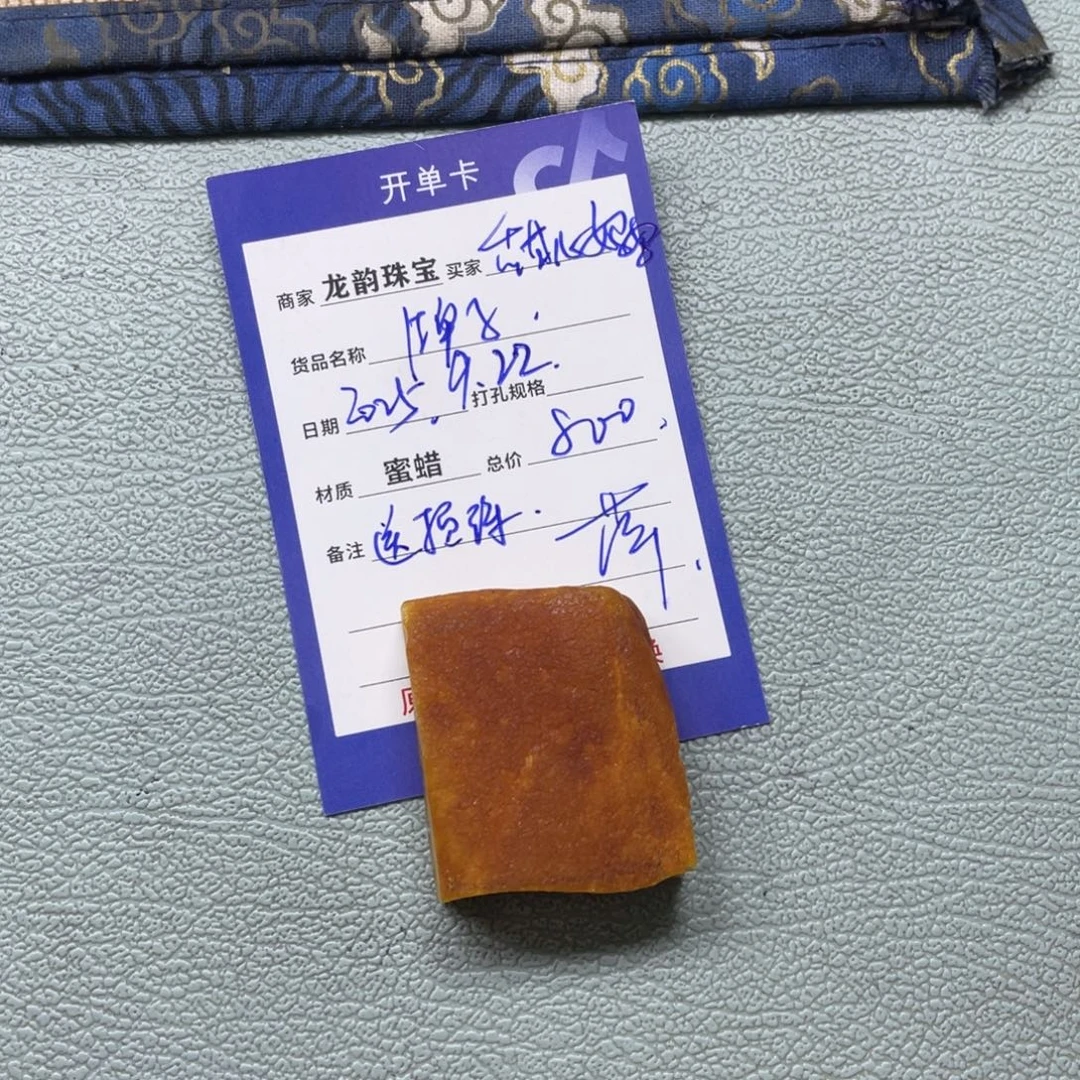 开单卡
商家 龙韵珠宝 买家
货品名称 牌子.
日期 2025.9.22. 打孔规格
材质 蜜蜡 总价 800.
备注 送损珠.
原 换